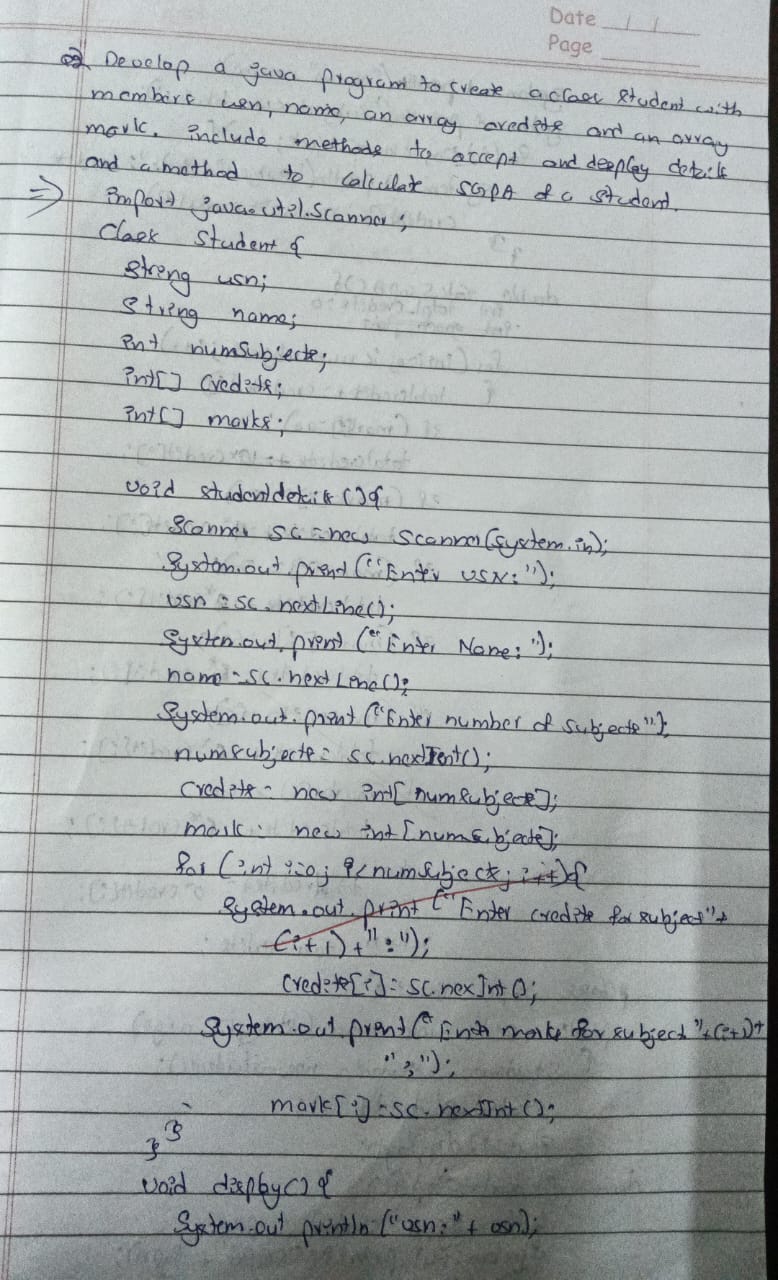 Date __/__/__
Page
Q2 Develop a java program to create a class Student with
members usn, name, an array credits and an array
mark. include methods to accept and display details
and a method to calculate SGPA of a student.
⇒ import java.util.Scanner;
Class Student {
String usn;
String name;
int numSubjects;
int[] Credits;
int[] marks;
void studentdetails(){
Scanner sc = new Scanner(System.in);
System.out.print("Enter USN:");
usn = sc.nextLine();
System.out.print("Enter Name:");
name = sc.nextLine();
System.out.print("Enter number of subjects");
numsubjects = sc.nextInt();
Credits = new int[numsubjects];
mark = new int[numsubjects];
for (int i=0; i<numsubjects; i++){
System.out.print("Enter credits for subject"+
(i+1)+":");
Credits[i] = sc.nexInt();
System.out.print("Enter marks for subject"+(i+1)+
":");
mark[i] = sc.nextInt();
}
}
void display(){
System.out println("usn:"+ usn);